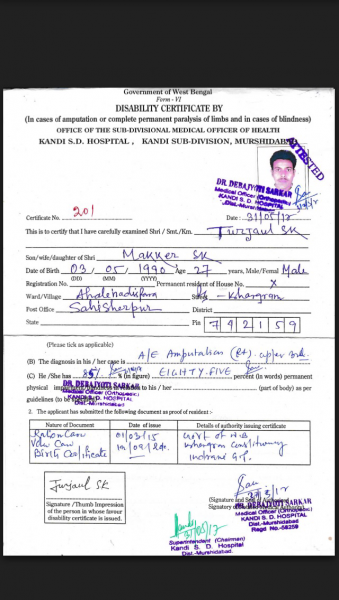 Government of West Bengal
Form - VI
DISABILITY CERTIFICATE BY
(In cases of amputation or complete permanent paralysis of limbs and in cases of blindness)
OFFICE OF THE SUB-DIVISIONAL MEDICAL OFFICER OF HEALTH
KANDI S.D. HOSPITAL , KANDI SUB-DIVISION, MURSHIDABAD
ATTESTED
DR. DEBAJYOTI SARKAR
Medical Officer (Orthopedic)
KANDI S. D. HOSPITAL
Dist.-Murshidabad
Certificate No. 201 Date : 31/05/17
This is to certify that I have carefully examined Shri / Smt./Km. Turjaul SK
Son/wife/daughter of Shri Makker SK
Date of Birth 03 05 1990 Age 27 years, Male/Female Male
(DD) (MM) (YYYY)
Registration No. Permanent resident of House No. X
Ward/Village Street Khargram
Post Office District
State Pin 742159
(Please tick as applicable)
(B) The diagnosis in his/her case is A/E Amputation (Rt)
(C) He /She has 85 % (in figure) EIGHTY-FIVE percent (in words) permanent
physical impairment in relation to his / her (part of body) as per
guidelines (to be
DR. DEBAJYOTI SARKAR
Medical Officer (Orthopedic)
KANDI S. D. HOSPITAL
Dist.-Murshidabad
2. The applicant has submitted the following document as proof of resident :-
Nature of Document Date of issue Details of authority issuing certificate
Ration Card 01/03/15 Govt of W.B
Birth Certificate
Turjaul SK
Signature /Thumb Impression
of the person in whose favour
disability certificate is issued.
DR. DEBAJYOTI SARKAR
Medical Officer (Orthopedic)
KANDI S. D. HOSPITAL
Dist.-Murshidabad
Regd No.-58259
Superintendent (Chairman)
Kandi S. D. Hospital
Dist.-Murshidabad.